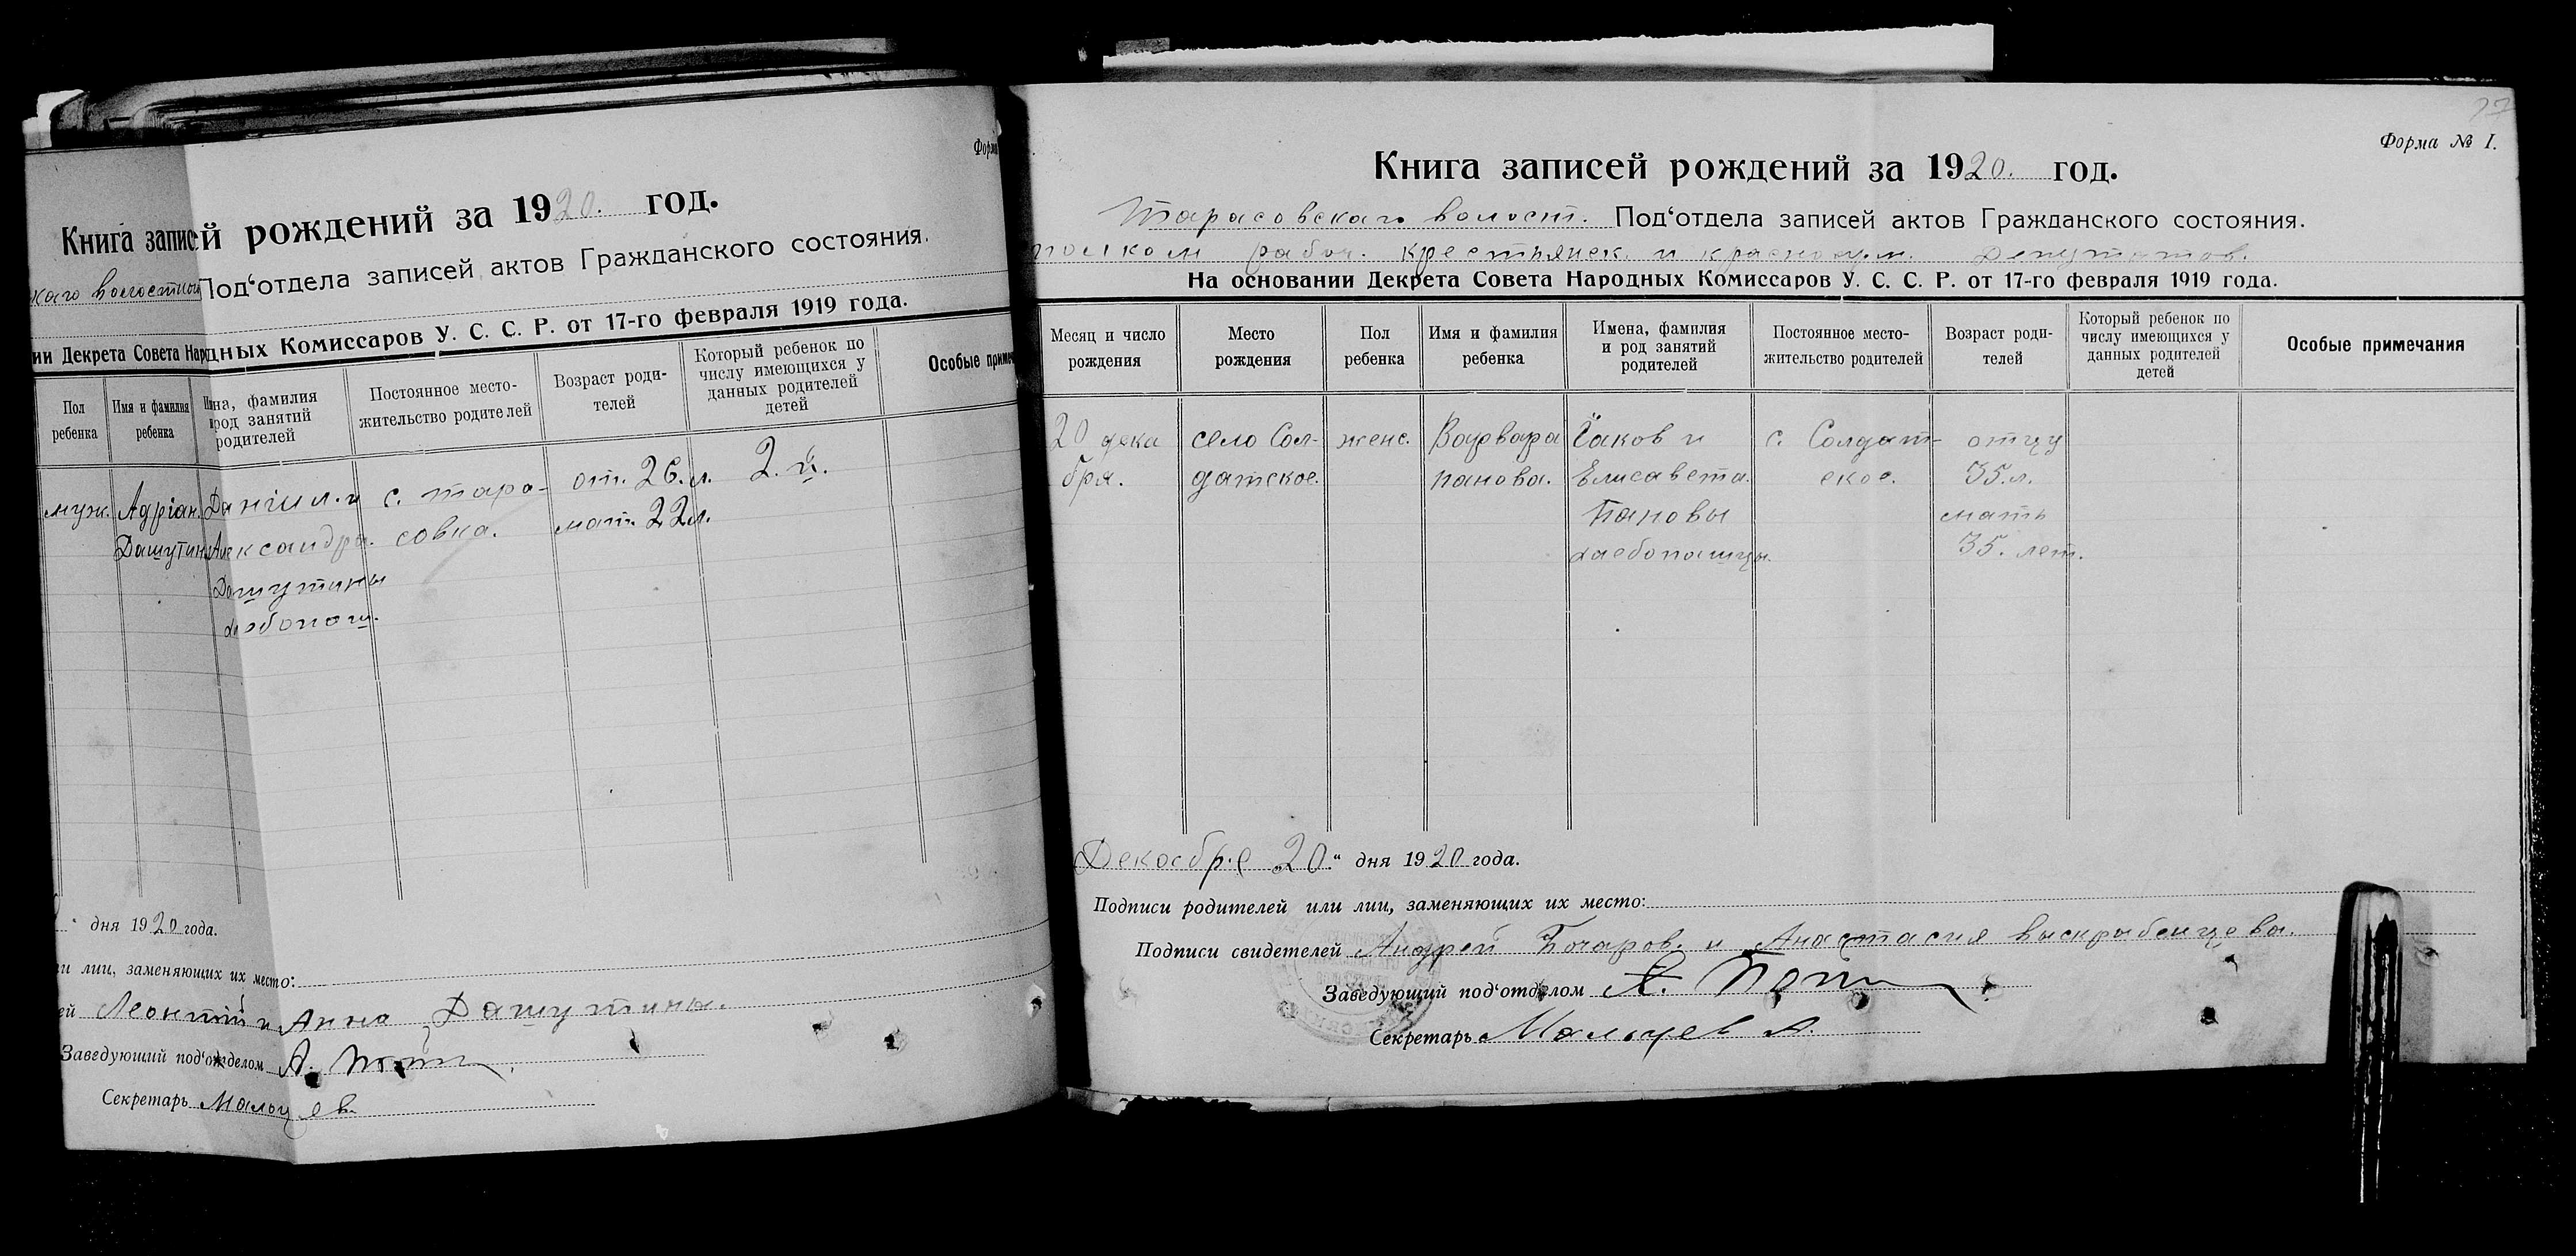 Форма
Книга записей рождений за 1920. год.
каго волостной Под‘отдела записей актов Гражданского состояния.
ии Декрета Совета Народных Комиссаров У. С. С. Р. от 17-го февраля 1919 года.
Пол ребенка
Имя и фамилия ребенка
Имена, фамилия
и род занятий
родителей
Постоянное место-
жительство родителей
Возраст роди-
телей
Который ребенок по
числу имеющихся у
данных родителей
детей
Особые примеч
муж.
Адріан.
Дашутин.
Даніил. и
Александра.
Дашутины
хлебопаш.
с. тара-
совка.
от. 26. л.
мат. 22 л.
2. й.
" дня 1920 года.
ли лиц, заменяющих их место:
ей Леонтій и Анна Дашутины.
Заведующий под‘отделом А.
Секретарь Мальцев.
27
Форма № 1.
Книга записей рождений за 1920. год.
Тарасовскаго волост. Под‘отдела записей актов Гражданского состояния.
полком рабоч. крестьянск. и красноарм. Депутатов.
На основании Декрета Совета Народных Комиссаров У. С. С. Р. от 17-го февраля 1919 года.
Месяц и число
рождения
Место
рождения
Пол
ребенка
Имя и фамилия
ребенка
Имена, фамилия
и род занятий
родителей
Постоянное место-
жительство родителей
Возраст роди-
телей
Который ребенок по
числу имеющихся у
данных родителей
детей
Особые примечания
20 дека
бря.
село Сол-
датское.
женс.
Варвара
панова.
Їаков и
Елисавета.
Пановы
хлебопашцы.
с. Солдат-
ское.
отцу
35. л.
мать
35. лет.
Декабре „20“ дня 1920 года.
Подписи родителей или лиц, заменяющих их место:
Подписи свидетелей Андрей Бочаров. и Анастасия выскребенцева.
Заведующий под‘отделом А.
Секретарь Мальцев А.